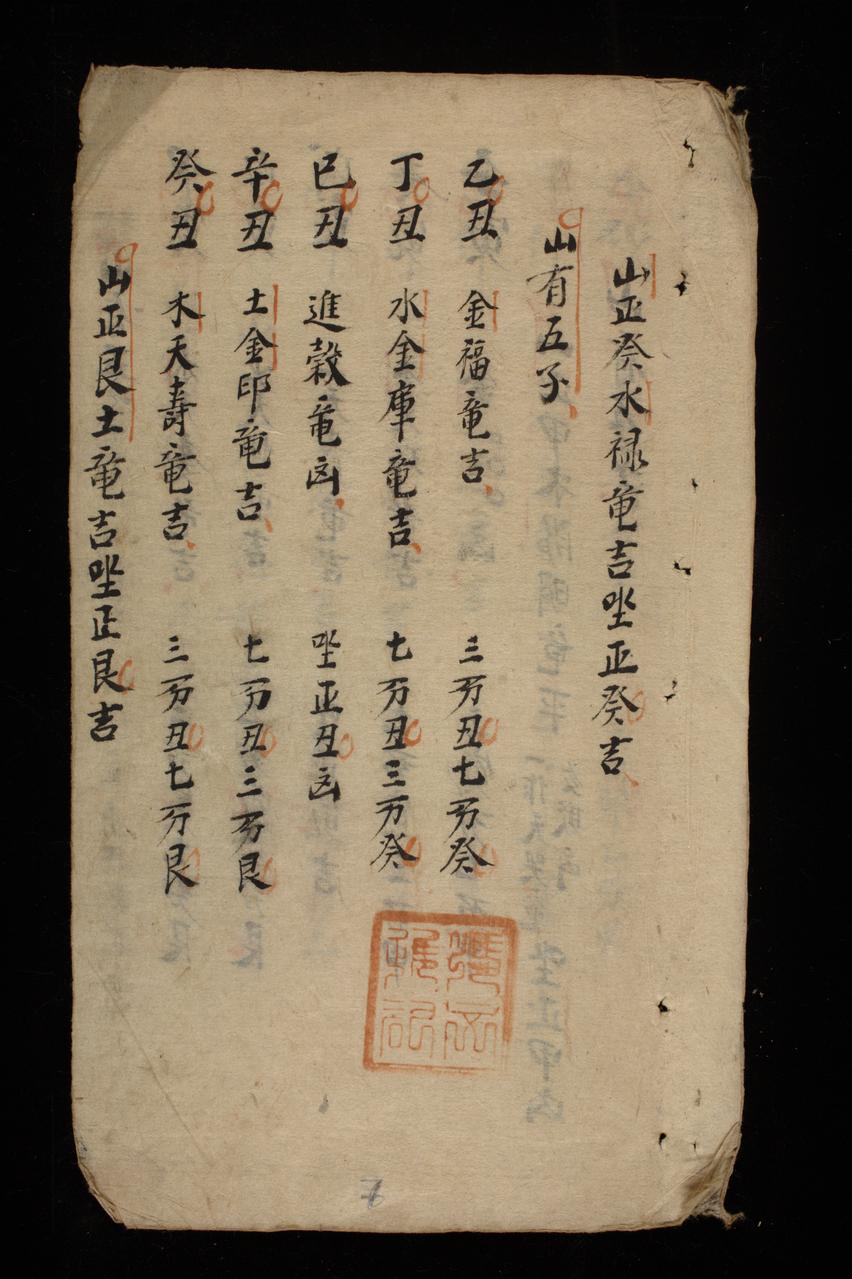 山正癸水禄竜吉坐正癸吉
山有五子
乙丑 金福竜吉 三分丑七分癸
丁丑 水金庫竜吉 七分丑三分癸
巳丑 進穀竜凶 坐正丑凶
辛丑 土金印竜吉 七分丑三分艮
癸丑 木天壽竜吉 三分丑七分艮
山正艮土竜吉坐正艮吉